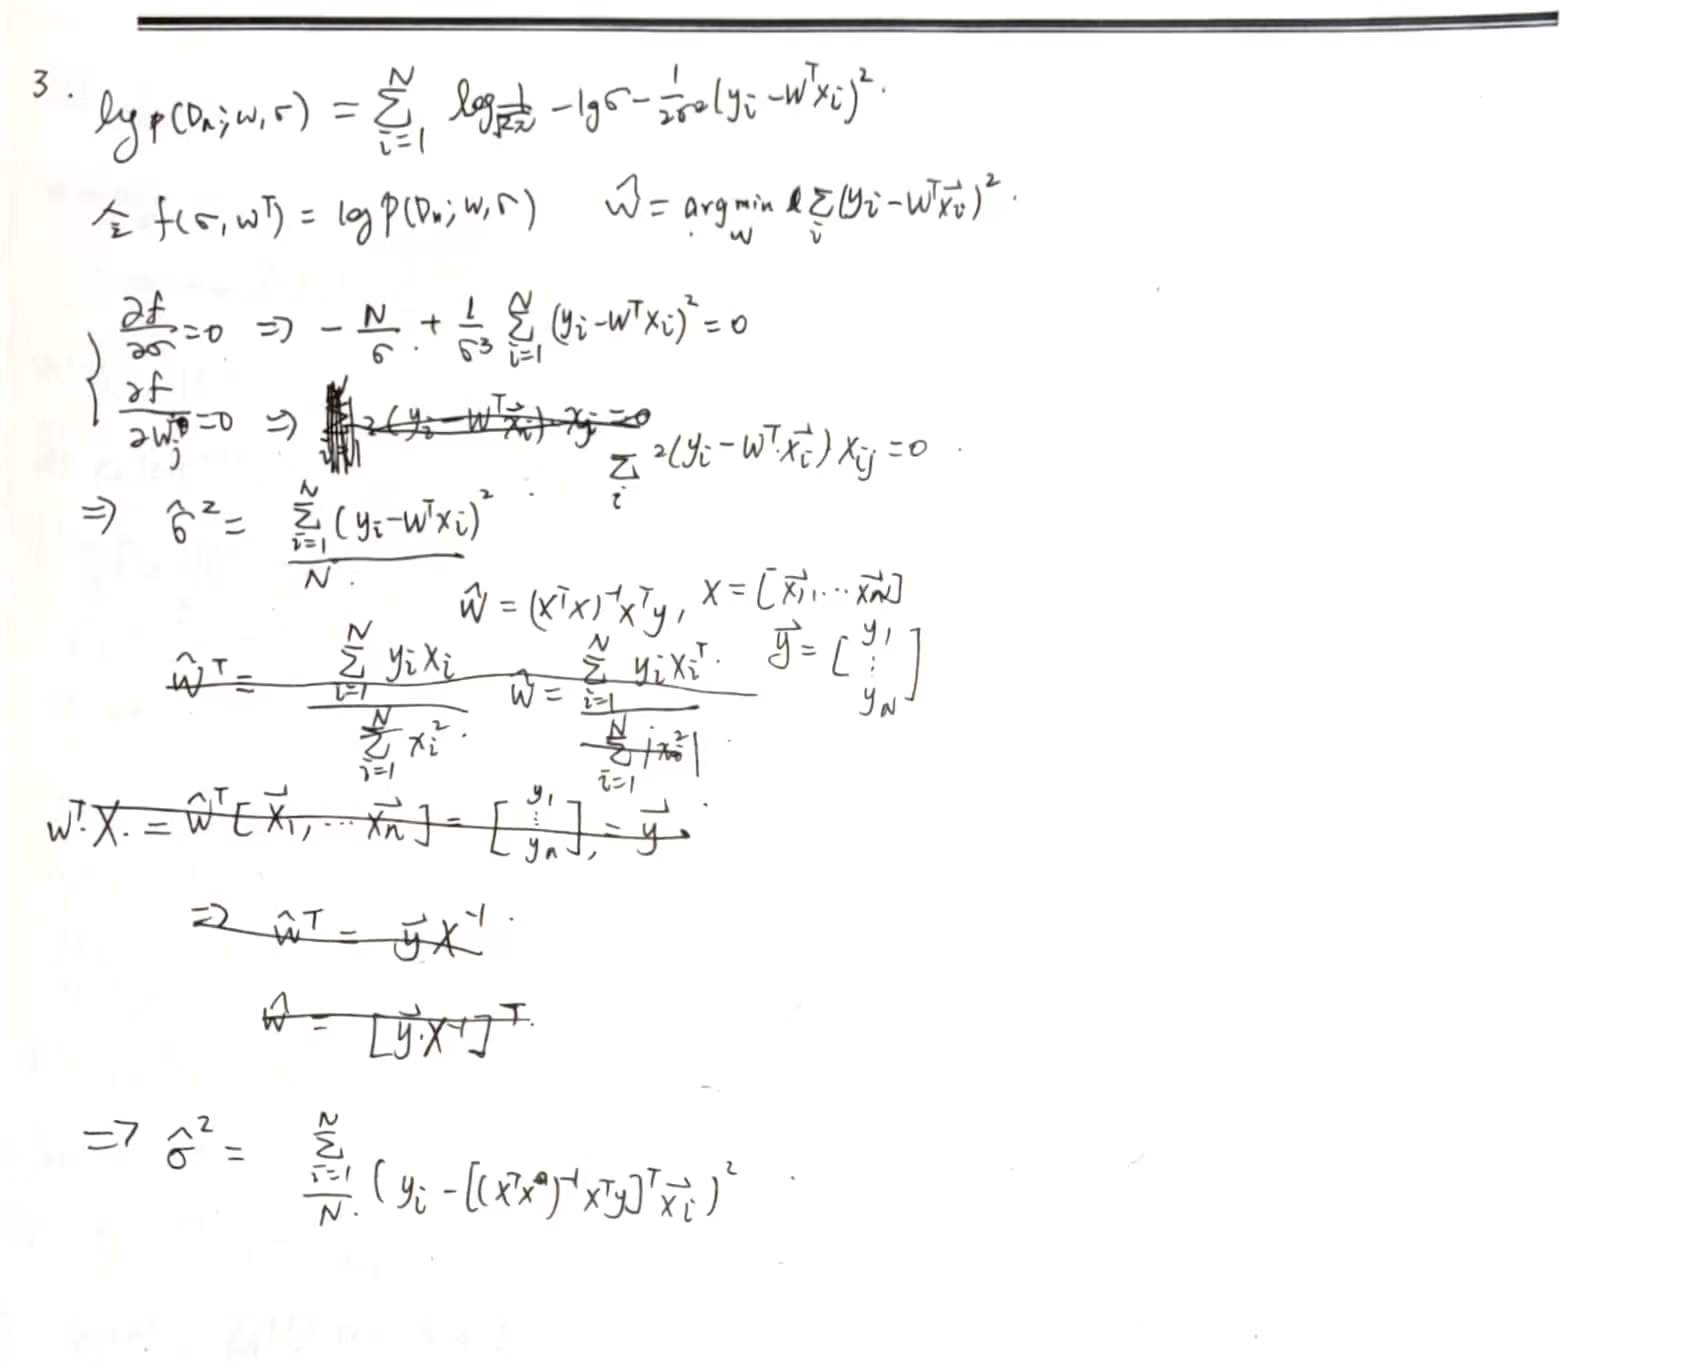 3. log p(Dn; w, σ) = ∑_{i=1}^{N} log 1/√2π - lgσ - 1/2σ² (yi - wᵀxi)².
令 f(σ, wᵀ) = log p(Dn; w, σ) ŵ = argmin_w ∑_i (yi - wᵀx⃗i)².
∂f/∂σ = 0 => - N/σ + 1/σ³ ∑_{i=1}^{N} (yi - wᵀxi)² = 0
∂f/∂wj = 0 => 2(yi - wᵀx⃗i) xij = 0
∑_i 2(yi - wᵀx⃗i) xij = 0.
=> σ̂² = ∑_{i=1}^{N} (yi - wᵀxi)² / N.
ŵ = (xᵀx)⁻¹xᵀy, X = [x⃗1, ... x⃗n]
y⃗ = [y1 ⋮ yN]
ŵᵀ = ∑_{i=1}^{N} yixi / ∑_{i=1}^{N} xi². ŵ = ∑_{i=1}^{N} yixiᵀ. / ∑_{i=1}^{N} |xi²|
wᵀ.X. = ŵᵀ[x⃗1, ... x⃗n] = [y1 ⋮ yn], = y⃗.
=> ŵᵀ = y⃗ X⁻¹.
ŵ = [y⃗.X⁻¹]ᵀ.
=> σ̂² = ∑_{i=1}^{N} / N. (yi - [(xᵀx)⁻¹xᵀy]ᵀx⃗i)².